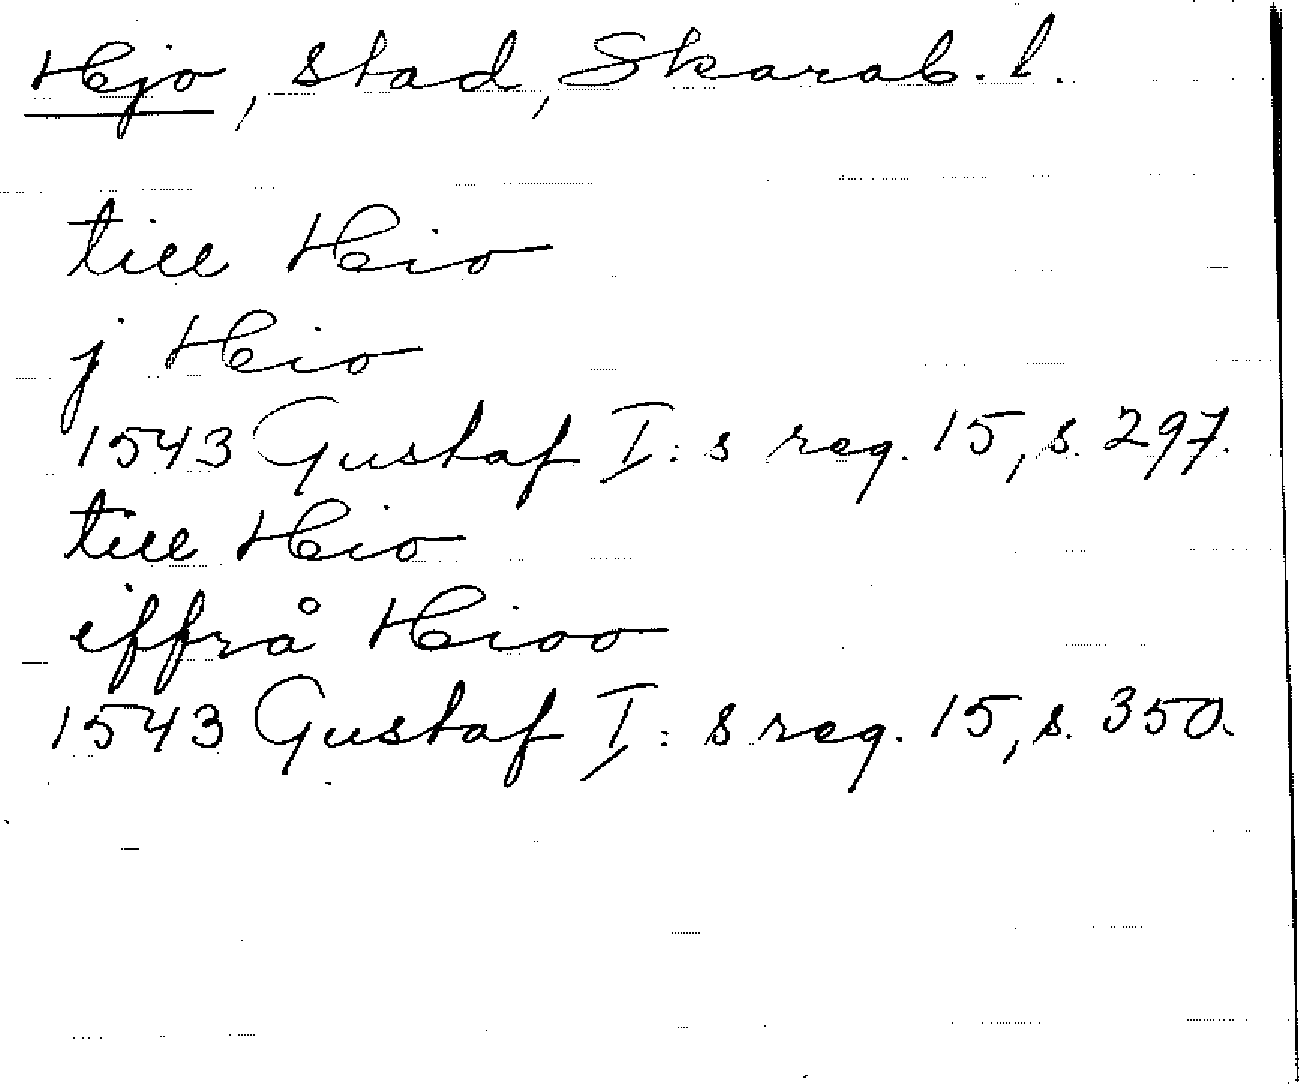 Hjo, stad, Skarab. l.
till Hio
j Hio
1543 Gustaf I:s reg. 15, s. 297.
till Hio
iffrå Hioo
1543 Gustaf I:s reg. 15, s. 350.